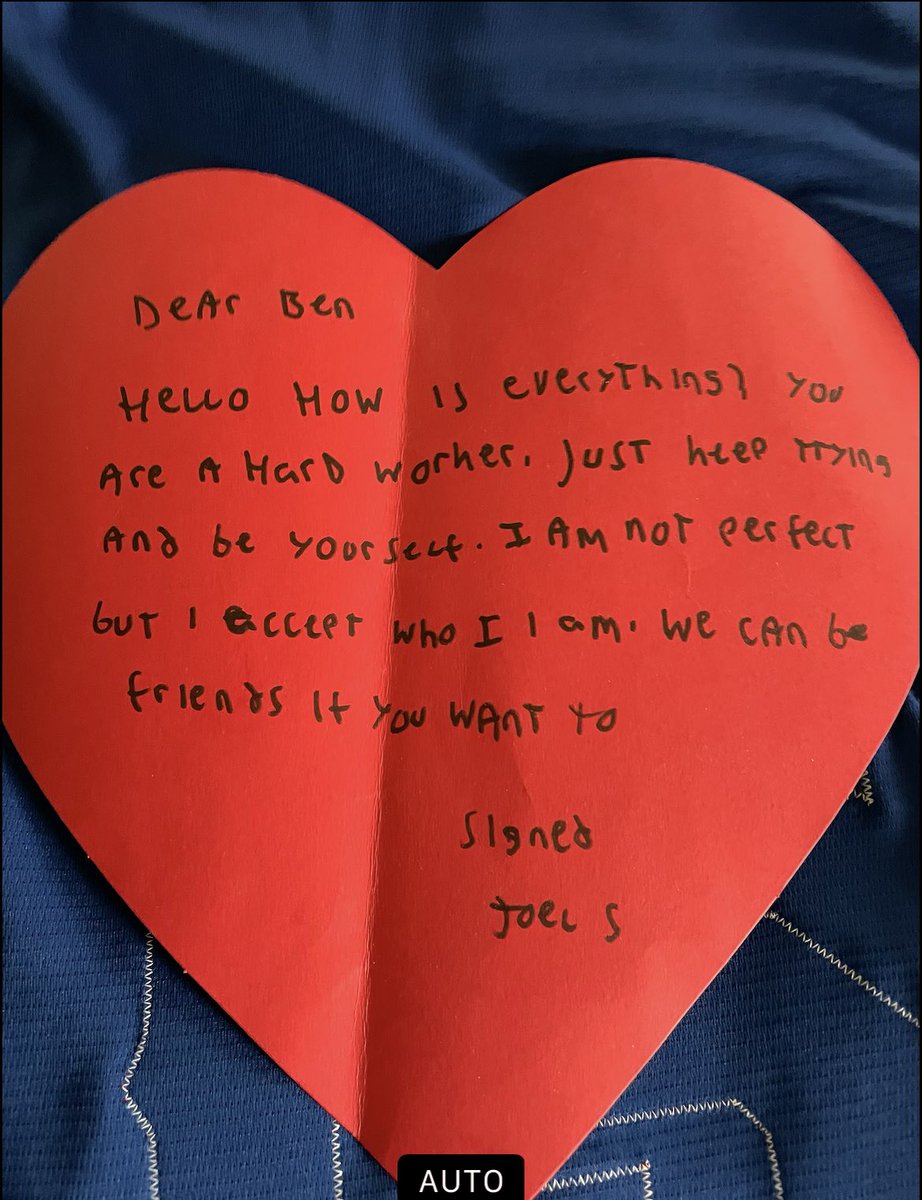 Dear Ben
Hello How is everything? You
Are A Hard worker. Just keep trying
And be yourself. I Am not perfect
but I accept who I I am. We can be
friends if you want to
Signed
Joel S
AUTO